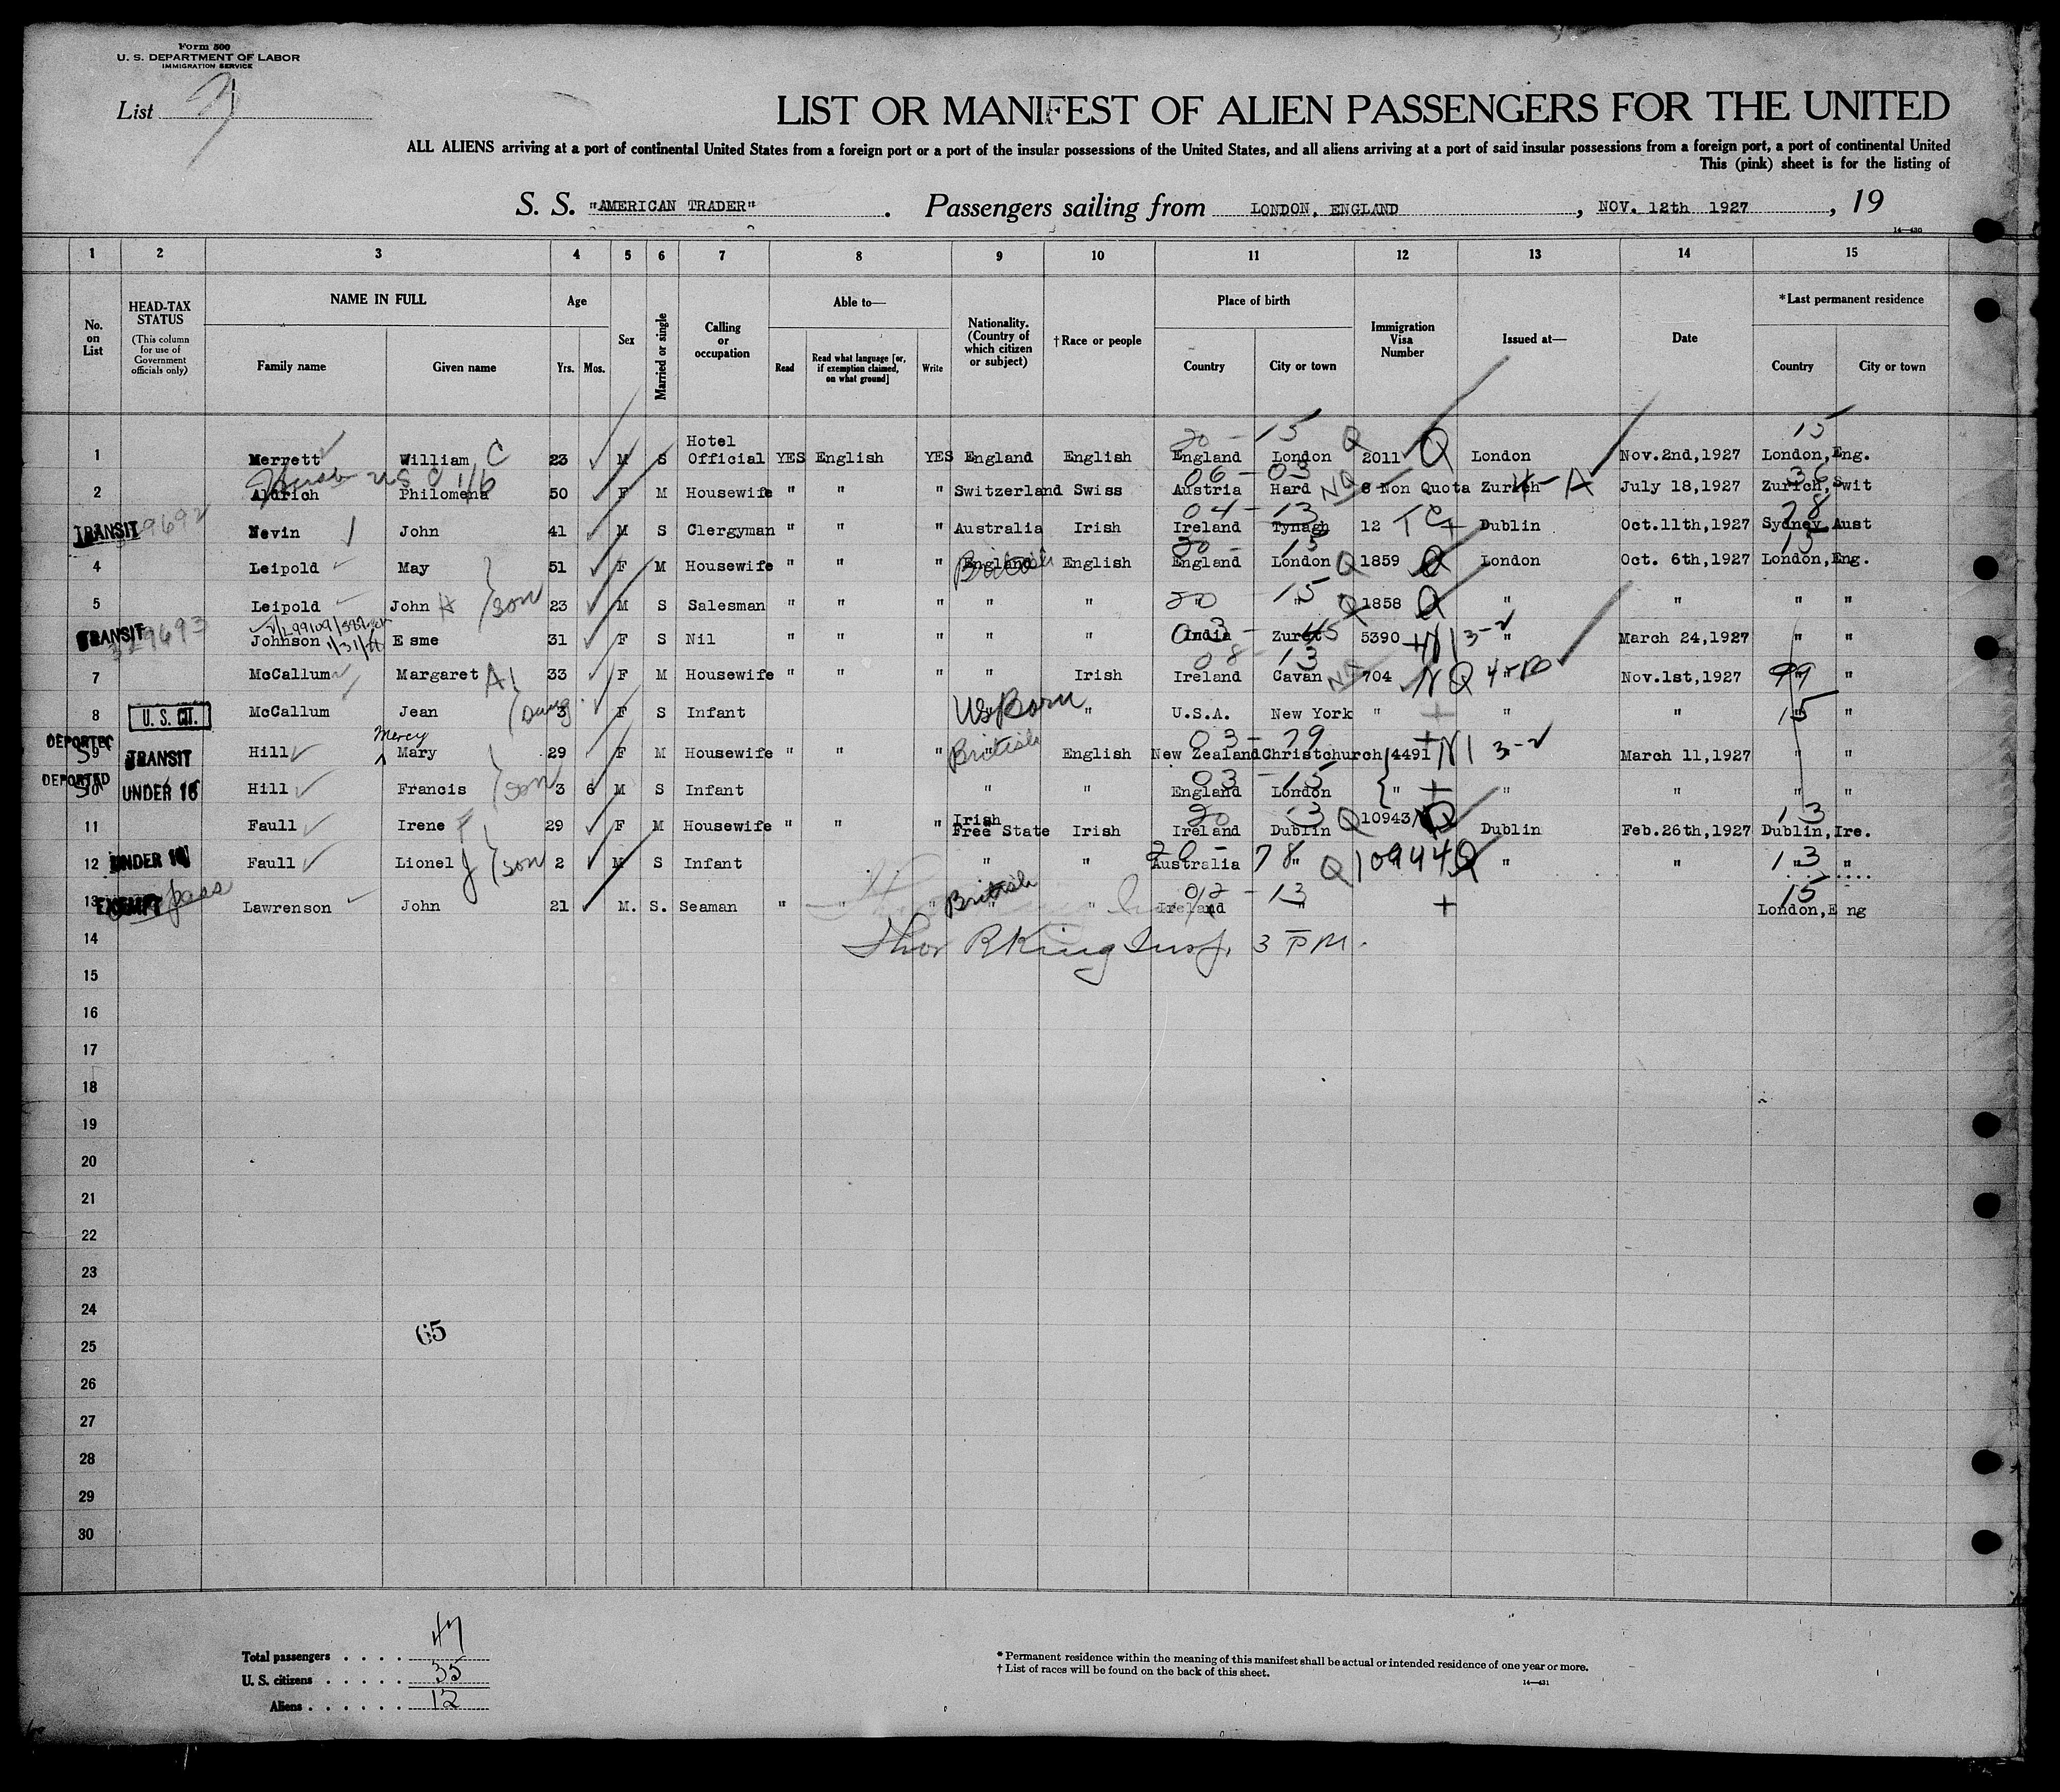 Form 500
U. S. DEPARTMENT OF LABOR
IMMIGRATION SERVICE
List
LIST OR MANIFEST OF ALIEN PASSENGERS FOR THE UNITED
ALL ALIENS arriving at a port of continental United States from a foreign port or a port of the insular possessions of the United States, and all aliens arriving at a port of said insular possessions from a foreign port, a port of continental United
This (pink) sheet is for the listing of
S. S. "AMERICAN TRADER" . Passengers sailing from LONDON, ENGLAND , NOV. 12th 1927 , 19
14—430
1 2 3 4 5 6 7 8 9 10 11 12 13 14 15
No. on List
HEAD-TAX STATUS
(This column for use of Government officials only)
NAME IN FULL
Family name Given name
Age
Yrs. Mos.
Sex
Married or single
Calling or occupation
Able to—
Read Read what language [or, if exemption claimed, on what ground] Write
Nationality. (Country of which citizen or subject)
†Race or people
Place of birth
Country City or town
Immigration Visa Number
Issued at—
Date
*Last permanent residence
Country City or town
20 - 15 Q 15
1 Merrett William C 23 M S Hotel Official YES English YES England English England London 2011 Q London Nov.2nd,1927 London, Eng.
US C 1/6 06 - 03
2 Aldrich Philomena 50 F M Housewife " " " Switzerland Swiss Austria Hard NQ 8 Non Quota Zurich A July 18,1927 Zurich, Swit
04 - 13 78
TRANSIT Nevin John 41 M S Clergyman " " " Australia Irish Ireland Tynagh 12 TC + Dublin Oct.11th,1927 Sydney Aust
20 - 15 15
4 Leipold May 51 F M Housewife " " " England British English England London Q 1859 Q London Oct. 6th,1927 London, Eng.
5 Leipold John H son 23 M S Salesman " " " " " 20 - 15 " Q 1858 Q " " " "
TRANSIT 329693 Johnson Esme 31 F S Nil " " " " " India 5390 + N 3-2 " March 24,1927 " "
08 - 13
7 McCallum Margaret A 33 F M Housewife " " " " Irish Ireland Cavan NQ 704 NQ 4-D Nov.1st,1927 99 " "
8 U. S. CIT. McCallum Jean (Daug. 3 F S Infant US Born " U.S.A. New York " + " " 15 " "
Mercy 03 - 79
DEPORTED 9 TRANSIT Hill Mary 29 F M Housewife " " " British English New Zealand Christchurch 4491 + 3-2 March 11,1927 " "
03 - 15
DEPORTED 10 UNDER 16 Hill Francis son 3 6 M S Infant " " England London " + " " " "
20 13 13
11 Faull Irene F 29 F M Housewife " " " Irish Free State Irish Ireland Dublin Q 10943 Q Dublin Feb.26th,1927 Dublin, Ire.
12 UNDER 16 Faull Lionel J son 2 M S Infant " " 20 - Australia 78 " Q 10944 Q " " 13 " "
012 - 13 15
13 EXEMPT pass Lawrenson John 21 M. S. Seaman " " " British " " Ireland " + London, Eng
14 Thos R King Insp. 3 PM.
15
16
17
18
19
20
21
22
23
24
65
25
26
27
28
29
30
Total passengers . . . . 47
U. S. citizens . . . . . 35
Aliens . . . . . . 12
* Permanent residence within the meaning of this manifest shall be actual or intended residence of one year or more.
† List of races will be found on the back of this sheet.
14—431